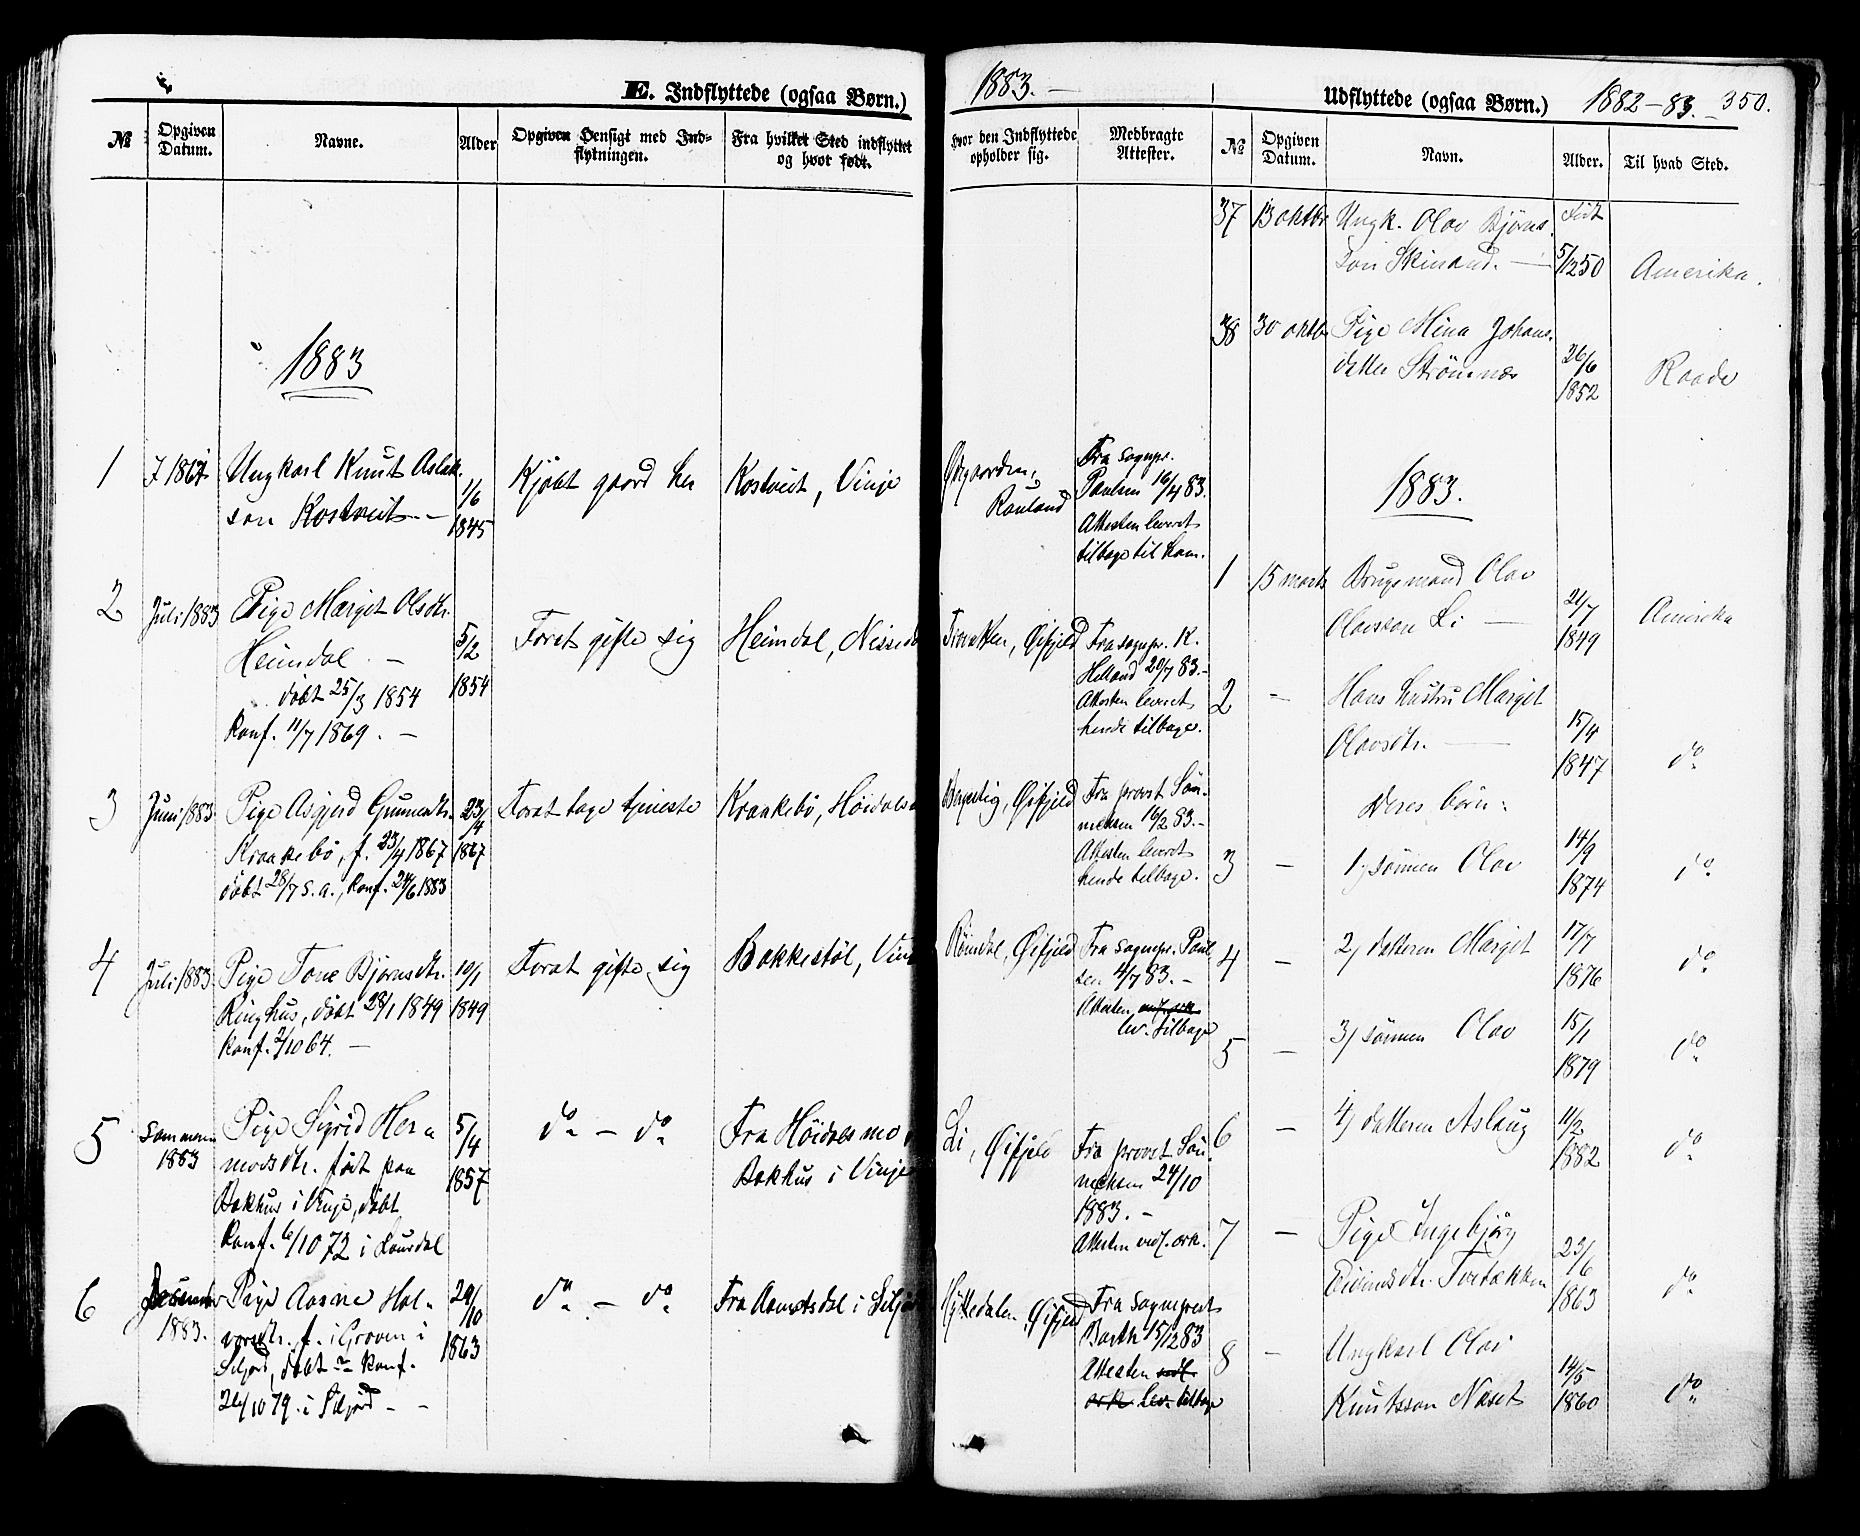 E. Indflyttede (ogsaa Børn.)
№
Opgiven Datum.
Navne.
Alder
Opgiven Hensigt med Ind-
flytningen.
Fra hvilket Sted indflyttet
og hvor født.
1883
1
Ungkarl Knut Aslak-
son Kostveit. –
1/6
1845
Kjøbt gaard her
Kostveit, Vinje
2
Juli 1883
Pige Margit Olsdtr.
Heimdal. –
døbt 25/3 1854
Konf. 11/7 1869. –
5/2
1854
For at gifte sig
Heimdal, Nissedal
3
Juni 1883
Pige Asgjerd Gunnarsdtr.
Kraakebø, f. 23/4 1867
døbt 28/7 s. a., Konf. 24/6 1883
23/4
1867
For at tage tjeneste
Kraakebø, Høidalsmo
4
Juli 1883
Pige Tone Bjørnsdtr.
Ringhus, døbt 28/1 1849
Konf. 2/10 64. –
10/1
1849
For at gifte sig
Bakkestøl, Vinje
5
Sommeren
1883
Pige Sigrid Her-
modsdtr. født paa
Bakhus i Vinje, døbt
Konf. 6/10 72 i
5/4
1857
do – do
Fra Høidalsmo
Bakhus i Vinje
6
Desember
1883.
Pige Aasne Hal-
vorsdtr. f. i Groven i
Siljord, døbt – Konf.
i Siljord –
20/10
1863
do – do
Fra Aamotsdal i Siljord
1883. –
hvor den Indflyttede
opholder sig.
Medbragte
Attester.
Øigaarden,
Rauland
Fra sognepr.
Paulsen 16/4 83.
Attesten leveret
tilbage til ham.
Øifjeld
Fra sognepr. K.
Helland 20/7 83. –
Attesten leveret
hende tilbage.
Øifjeld
Fra provst Søn-
nichsen 16/2 83. –
Attesten leveret
hende tilbage.
Røindal, Øifjeld
Fra sognepr. Paul-
sen 4/7 83. –
Attesten
lev. tilbage
Li, Øifjeld
Fra provst Søn-
nichsen 24/10
1883. –
Attesten vedl. ark.
Hyttedalen, Øifjeld
Fra sogneprest
Barth 15/12 83
Attesten vedl.
ark. lev. tilbage
Udflyttede (ogsaa Børn.)
1882–83. –
350.
№
Opgiven Datum.
Navn.
Alder.
Til hvad Sted.
37
13 oktbr
Ungk. Olav Bjørns-
son Skinand. –
Født
5/12 50
Amerika.
38
30 oktbr
Pige Mina Johans-
datter Strømnæs
26/6
1852
Raade
1883.
1
15 marts
Brugsmand Olav
Olavsson Li –
21/7
1849
Amerika
2
–
Hans hustru Margit
Olavsdtr. –
15/4
1847
do
Deres børn:
3
–
1) sønnen Olav
14/9
1874
do
4
–
2) datteren Margit
17/7
1876
do
5
–
3) sønnen Olav
15/1
1879
do
6
–
4) datteren Aslaug
11/2
1882
do
7
–
Pige Ingebjørg
Eivindsdtr.
23/6
1863
do
8
–
Ungkarl Olav
Knutsson Næset
14/5
1860
do